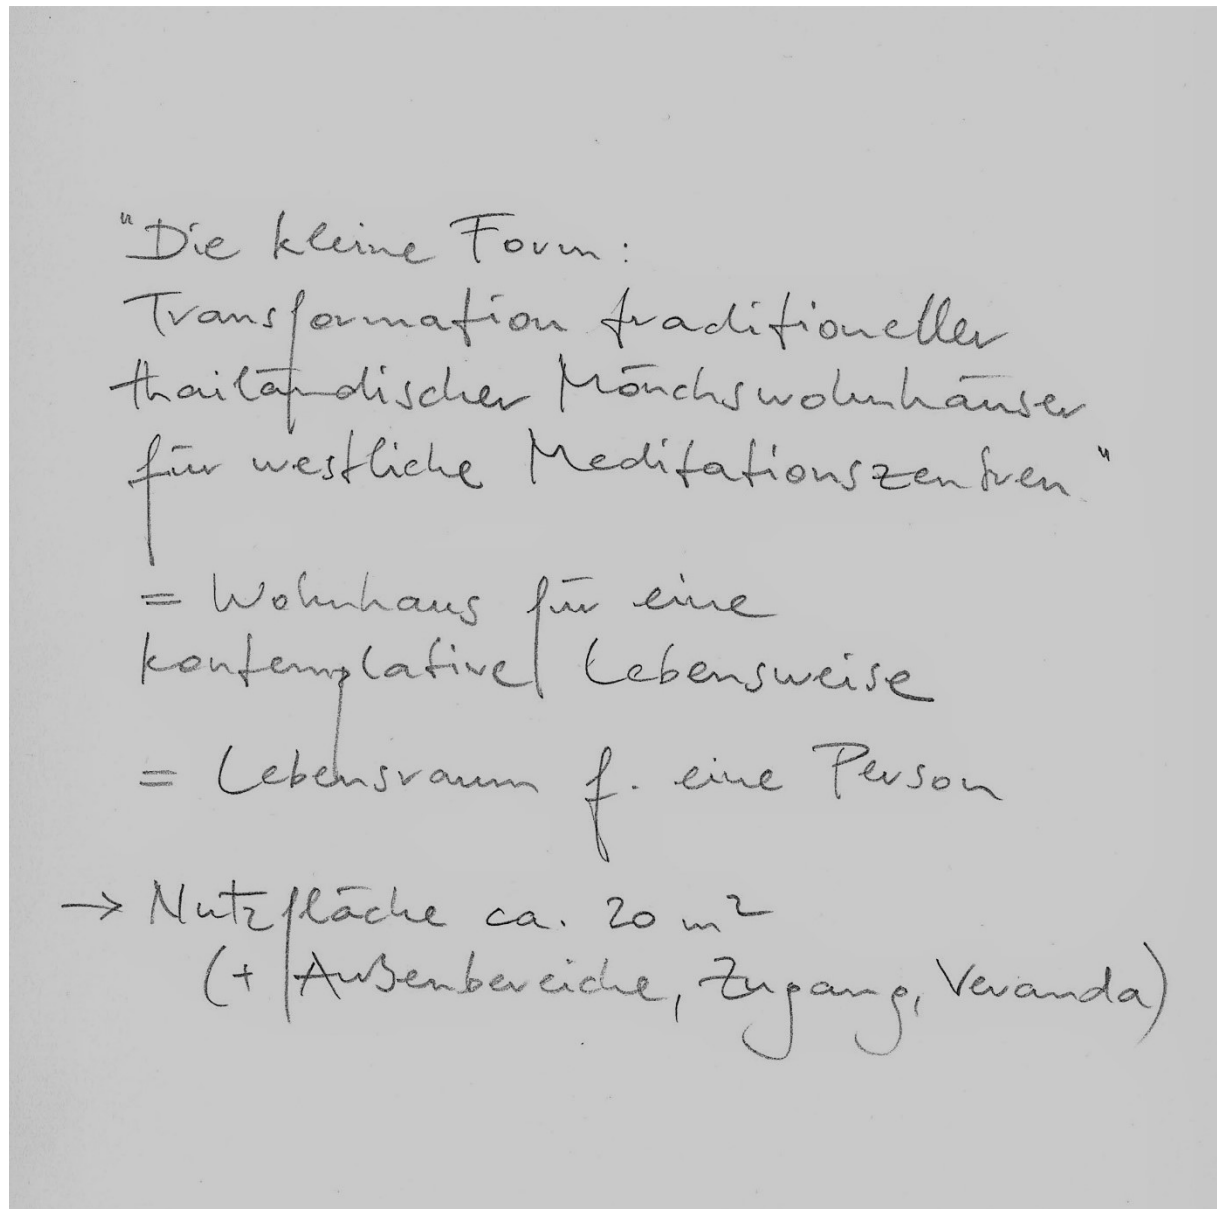 "Die kleine Form:
Transformation traditioneller
thailändischer Mönchswohnhäuser
für westliche Meditationszentren"
= Wohnhaus für eine
kontemplative Lebensweise
= Lebensraum f. eine Person
→ Nutzfläche ca. 20 m²
(+ Außenbereiche, Zugang, Veranda)